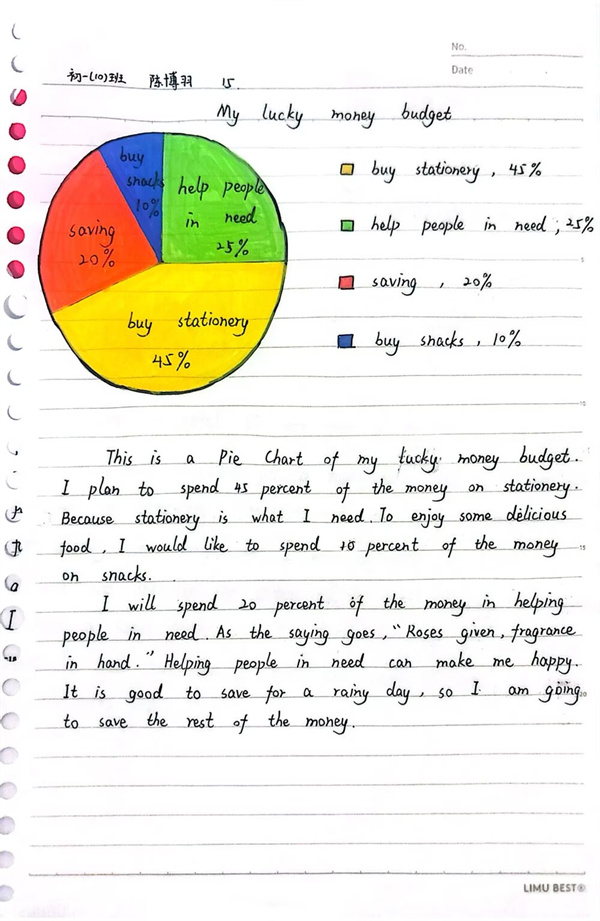 No.
Date
初一(10)班 陈博羽 15
My lucky money budget
buy
snacks
10%
help people
in need
25%
saving
20%
buy stationery
45%
buy stationery , 45%
help people in need , 25%
saving , 20%
buy snacks , 10%
This is a Pie Chart of my lucky money budget.
I plan to spend 45 percent of the money on stationery.
Because stationery is what I need. To enjoy some delicious
food , I would like to spend 10 percent of the money
on snacks.
I will spend 20 percent of the money in helping
people in need. As the saying goes, “Roses given, fragrance
in hand.” Helping people in need can make me happy.
It is good to save for a rainy day, so I am going
to save the rest of the money.
LIMU BEST®